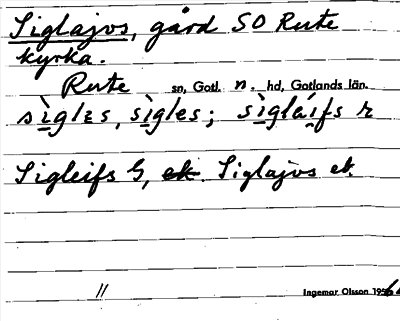 Siglajvs, gård SO Rute
kyrka.
Rute sn, Gotl. n. hd, Gotlands län.
sìgles, sìgles; sìgláifs r
Sigleifs G, ek. Siglajvs ek.
//
Ingemar Olsson 195